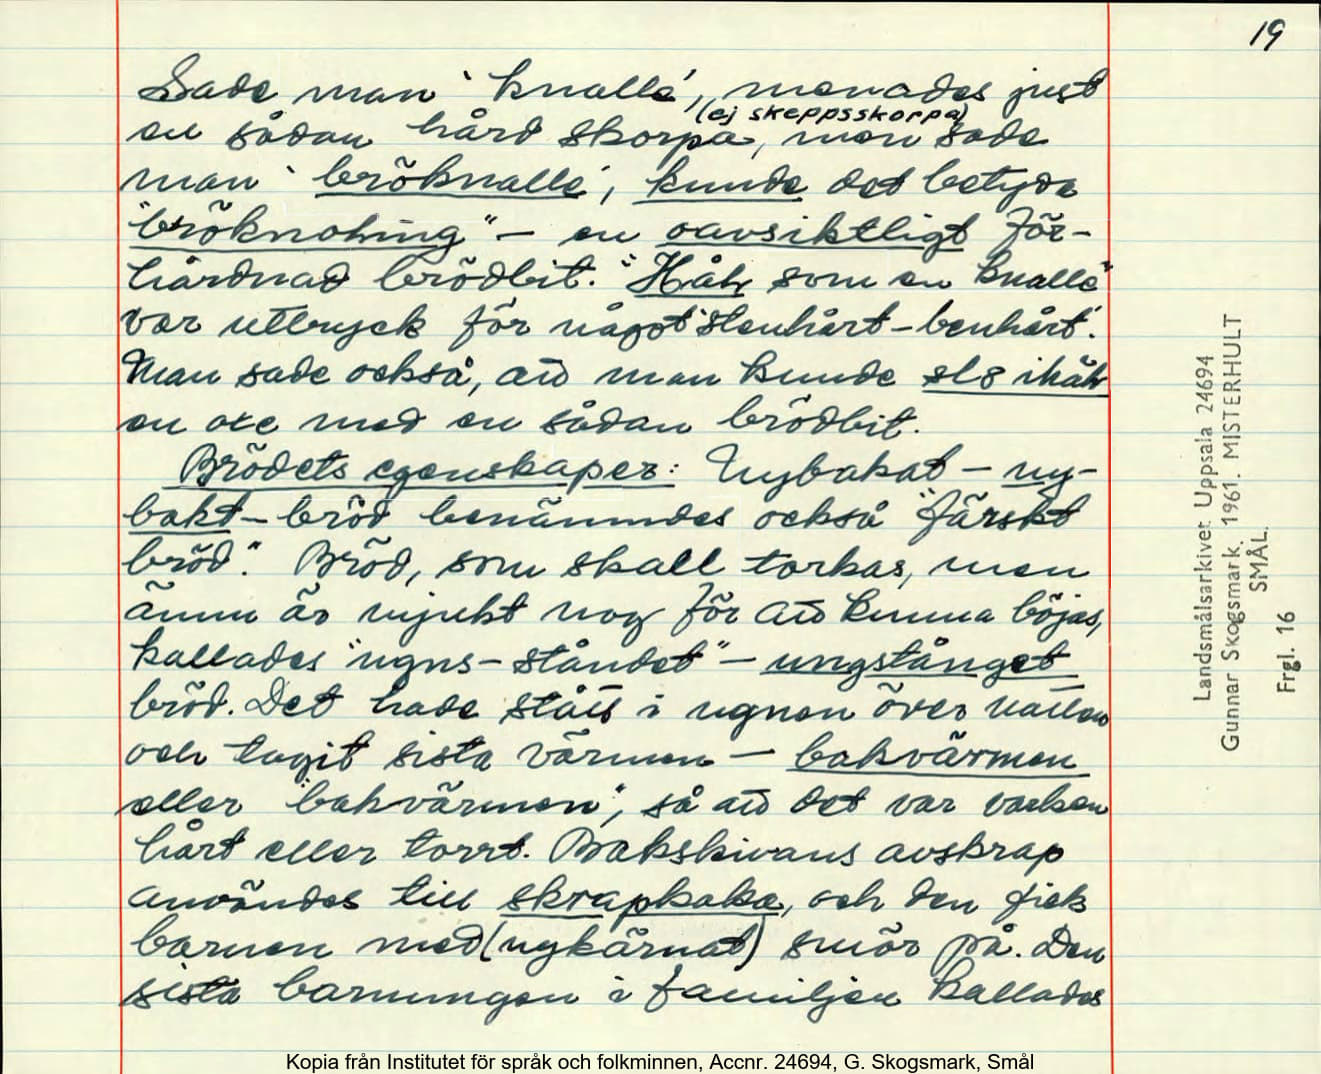 19
Sade man 'knalle', menades just
(ej skeppsskorpa)
en sådan hård skorpa, men sade
man 'bröknalle', kunde det betyda
"bröknohing" - en oavsiktligt för-
hårdnad brödbit. "Håk som en knalle"
var uttryck för något 'stenhårt-benhårt'.
Man sade också, att man kunde slå ihäl
en oxe med en sådan brödbit.
Brödets egenskaper: Nybakat - ny-
bakt - bröd benämndes också "färskt
bröd". Bröd, som skall torkas, men
ännu är mjukt nog för att kunna böjas,
kallades "ugns-ståndet" - ungstånget
bröd. Det hade stått i ugnen över natten
och tagit sista värmen - bakvärmen
eller "bakvärmen", så att det var varken
hårt eller torrt. Bakskivans avskrap
användes till skrapkaka, och den fick
barnen med (nykärnat) smör på. Den
sista barnungen i familjen kallades
Landsmålsarkivet Uppsala 24694
Gunnar Skogsmark. 1961. MISTERHULT
SMÅL.
Frgl. 16
Kopia från Institutet för språk och folkminnen, Accnr. 24694, G. Skogsmark, Smål